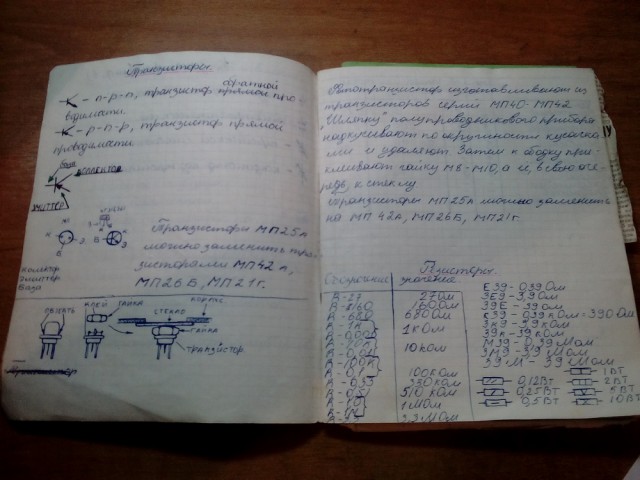 Транзисторы.
обратной
- n-p-n, транзистор прямой про-
водимости.
- p-n-p, транзистор прямой
проводимости.
база
коллектор
эмиттер
К
Э
Б
Э
Б
К
Э
Транзисторы МП25А
можно заменить тран-
зисторами МП42А,
МП26Б, МП21г.
Колектор
Эмиттер
База
срезать
клей
гайка
стекло
корпус
гайка
транзистор
Фототранзистор изготавливают из
транзисторов серий МП40-МП42
"Шляпку" полупроводникового прибора
надкусывают по окружности кусачка-
ми и удаляют. Затем к ободку при-
клеивают гайку М8-М10, а её, в свою оче-
редь, к стеклу.
Транзисторы МП25А можно заменить
на МП 42А, МП26Б, МП21г.
Резисторы.
значение
R-27 27Ом
680 Ом
R-1к
1кОм
10кОм
R-100к
R-0,1 100кОм
R-0,33 330кОм
R-0,51 510 кОм
R-1,0
R-1М 1МОм
R-3,3 3,3 МОм
Е39-0,39Ом
3Е9-3,9Ом
39Е-39Ом
К39-0,39кОм=390 Ом
3К9-3,9кОм
39К-39кОм
М39-0,39Мом
3М9-3,9Мом
39М-39Мом
0,12Вт
0,25Вт
0,5Вт
1 Вт
2 Вт
5 Вт
10 Вт